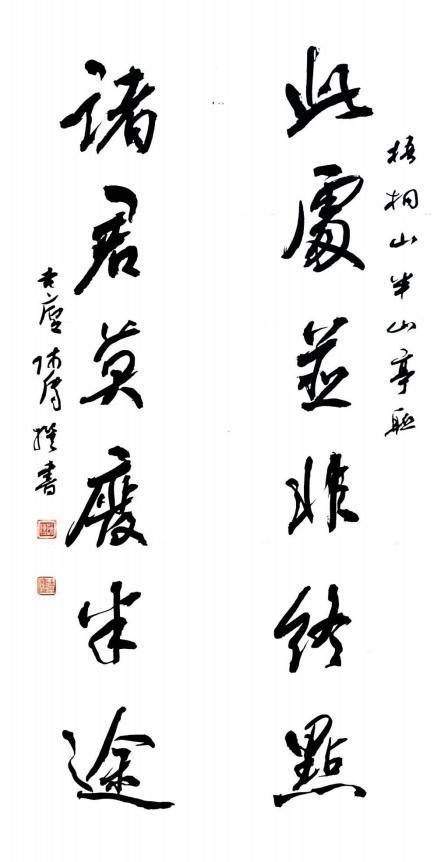 梧桐山半山亭聯
此處並非終點
諸君莫廢半途
撰書